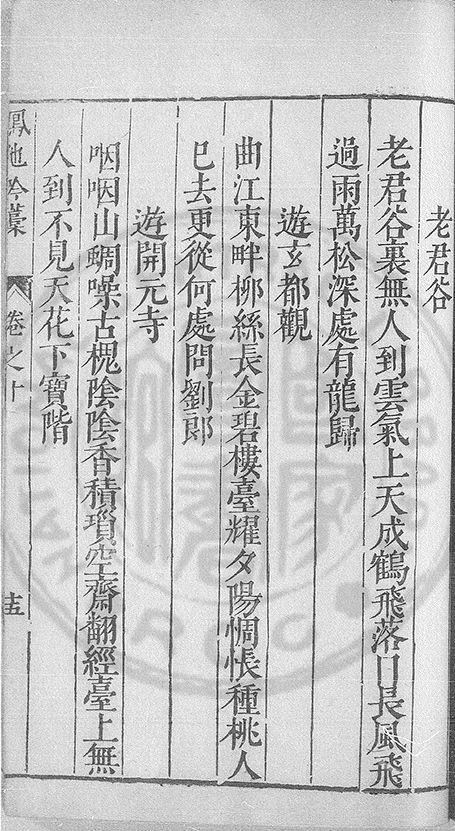 老君谷
老君谷裏無人到雲氣上天成鶴飛落日長風飛
過雨萬松深處有龍歸
遊玄都觀
曲江東畔柳絲長金碧樓臺耀夕陽惆悵種桃人
已去更從何處問劉郎
遊開元寺
咽咽山蜩噪古槐陰陰香積瑣空齋翻經臺上無
人到不見天花下寶階
鳳池吟藁 卷之十 十五